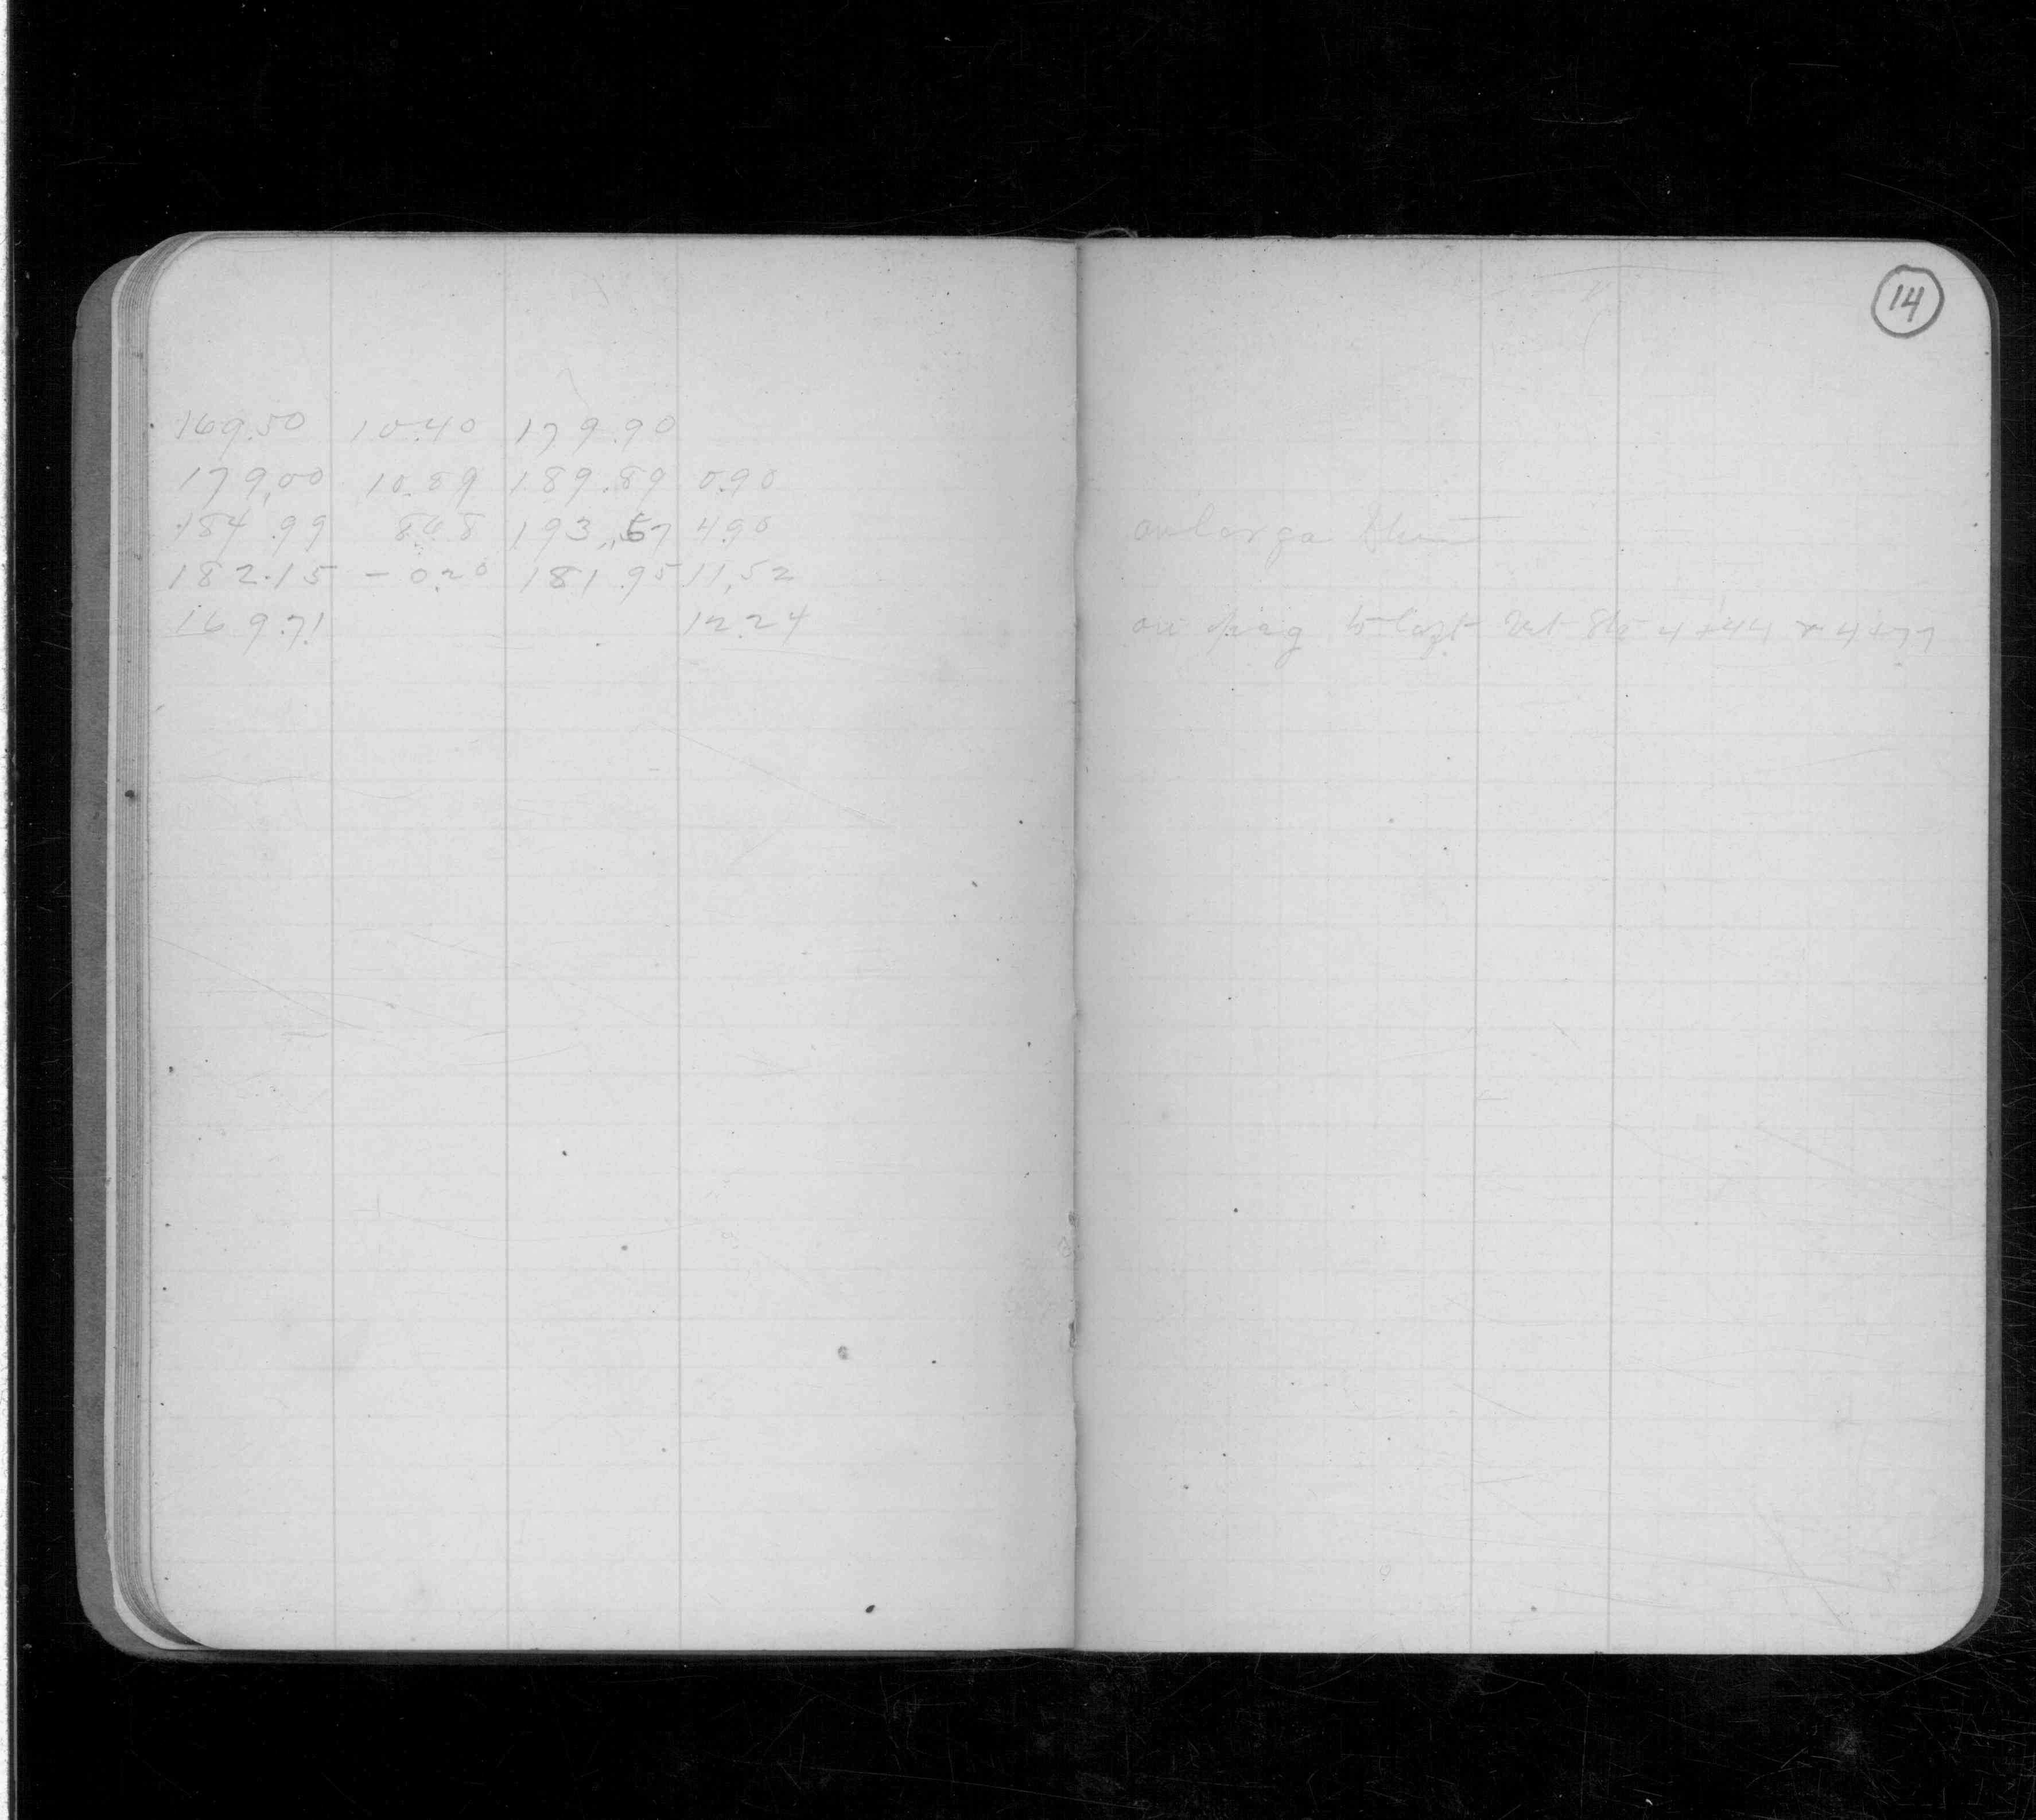 14
169.50 10.40 179.90
179.00 10.89 189.89 0.90
184.99 193.57 4.90
182.15 -0.20 181.95 11.52
169.71 12.24
on large
on 4+44 4+77